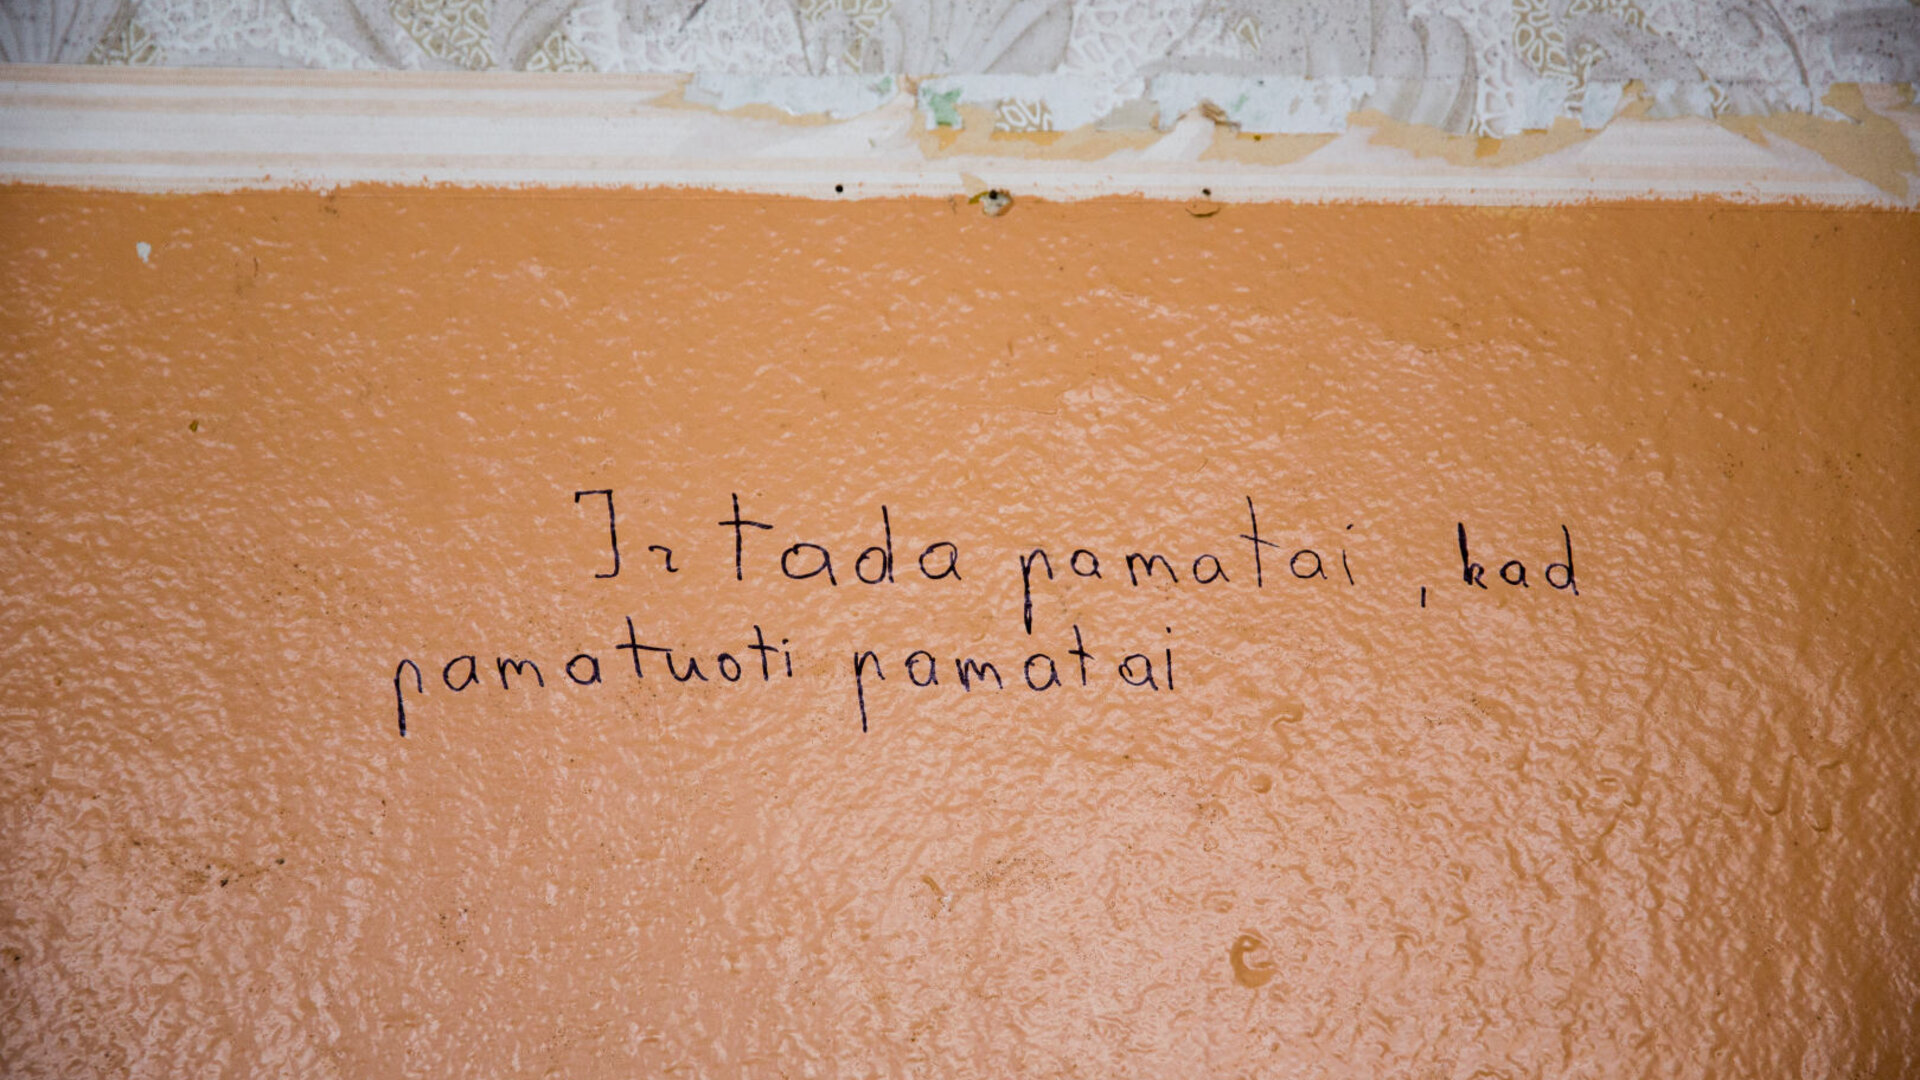 Ir tada pamatai, kad
pamatuoti pamatai